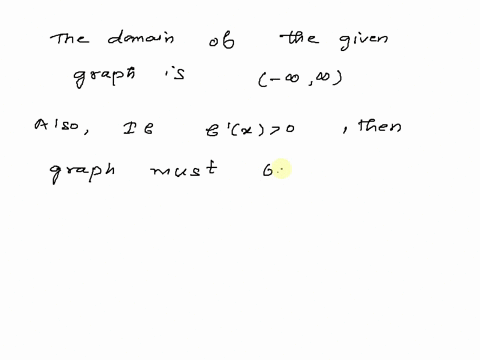 The domain of the given
graph is (-∞, ∞)
Also, If f'(x) > 0, then
graph must